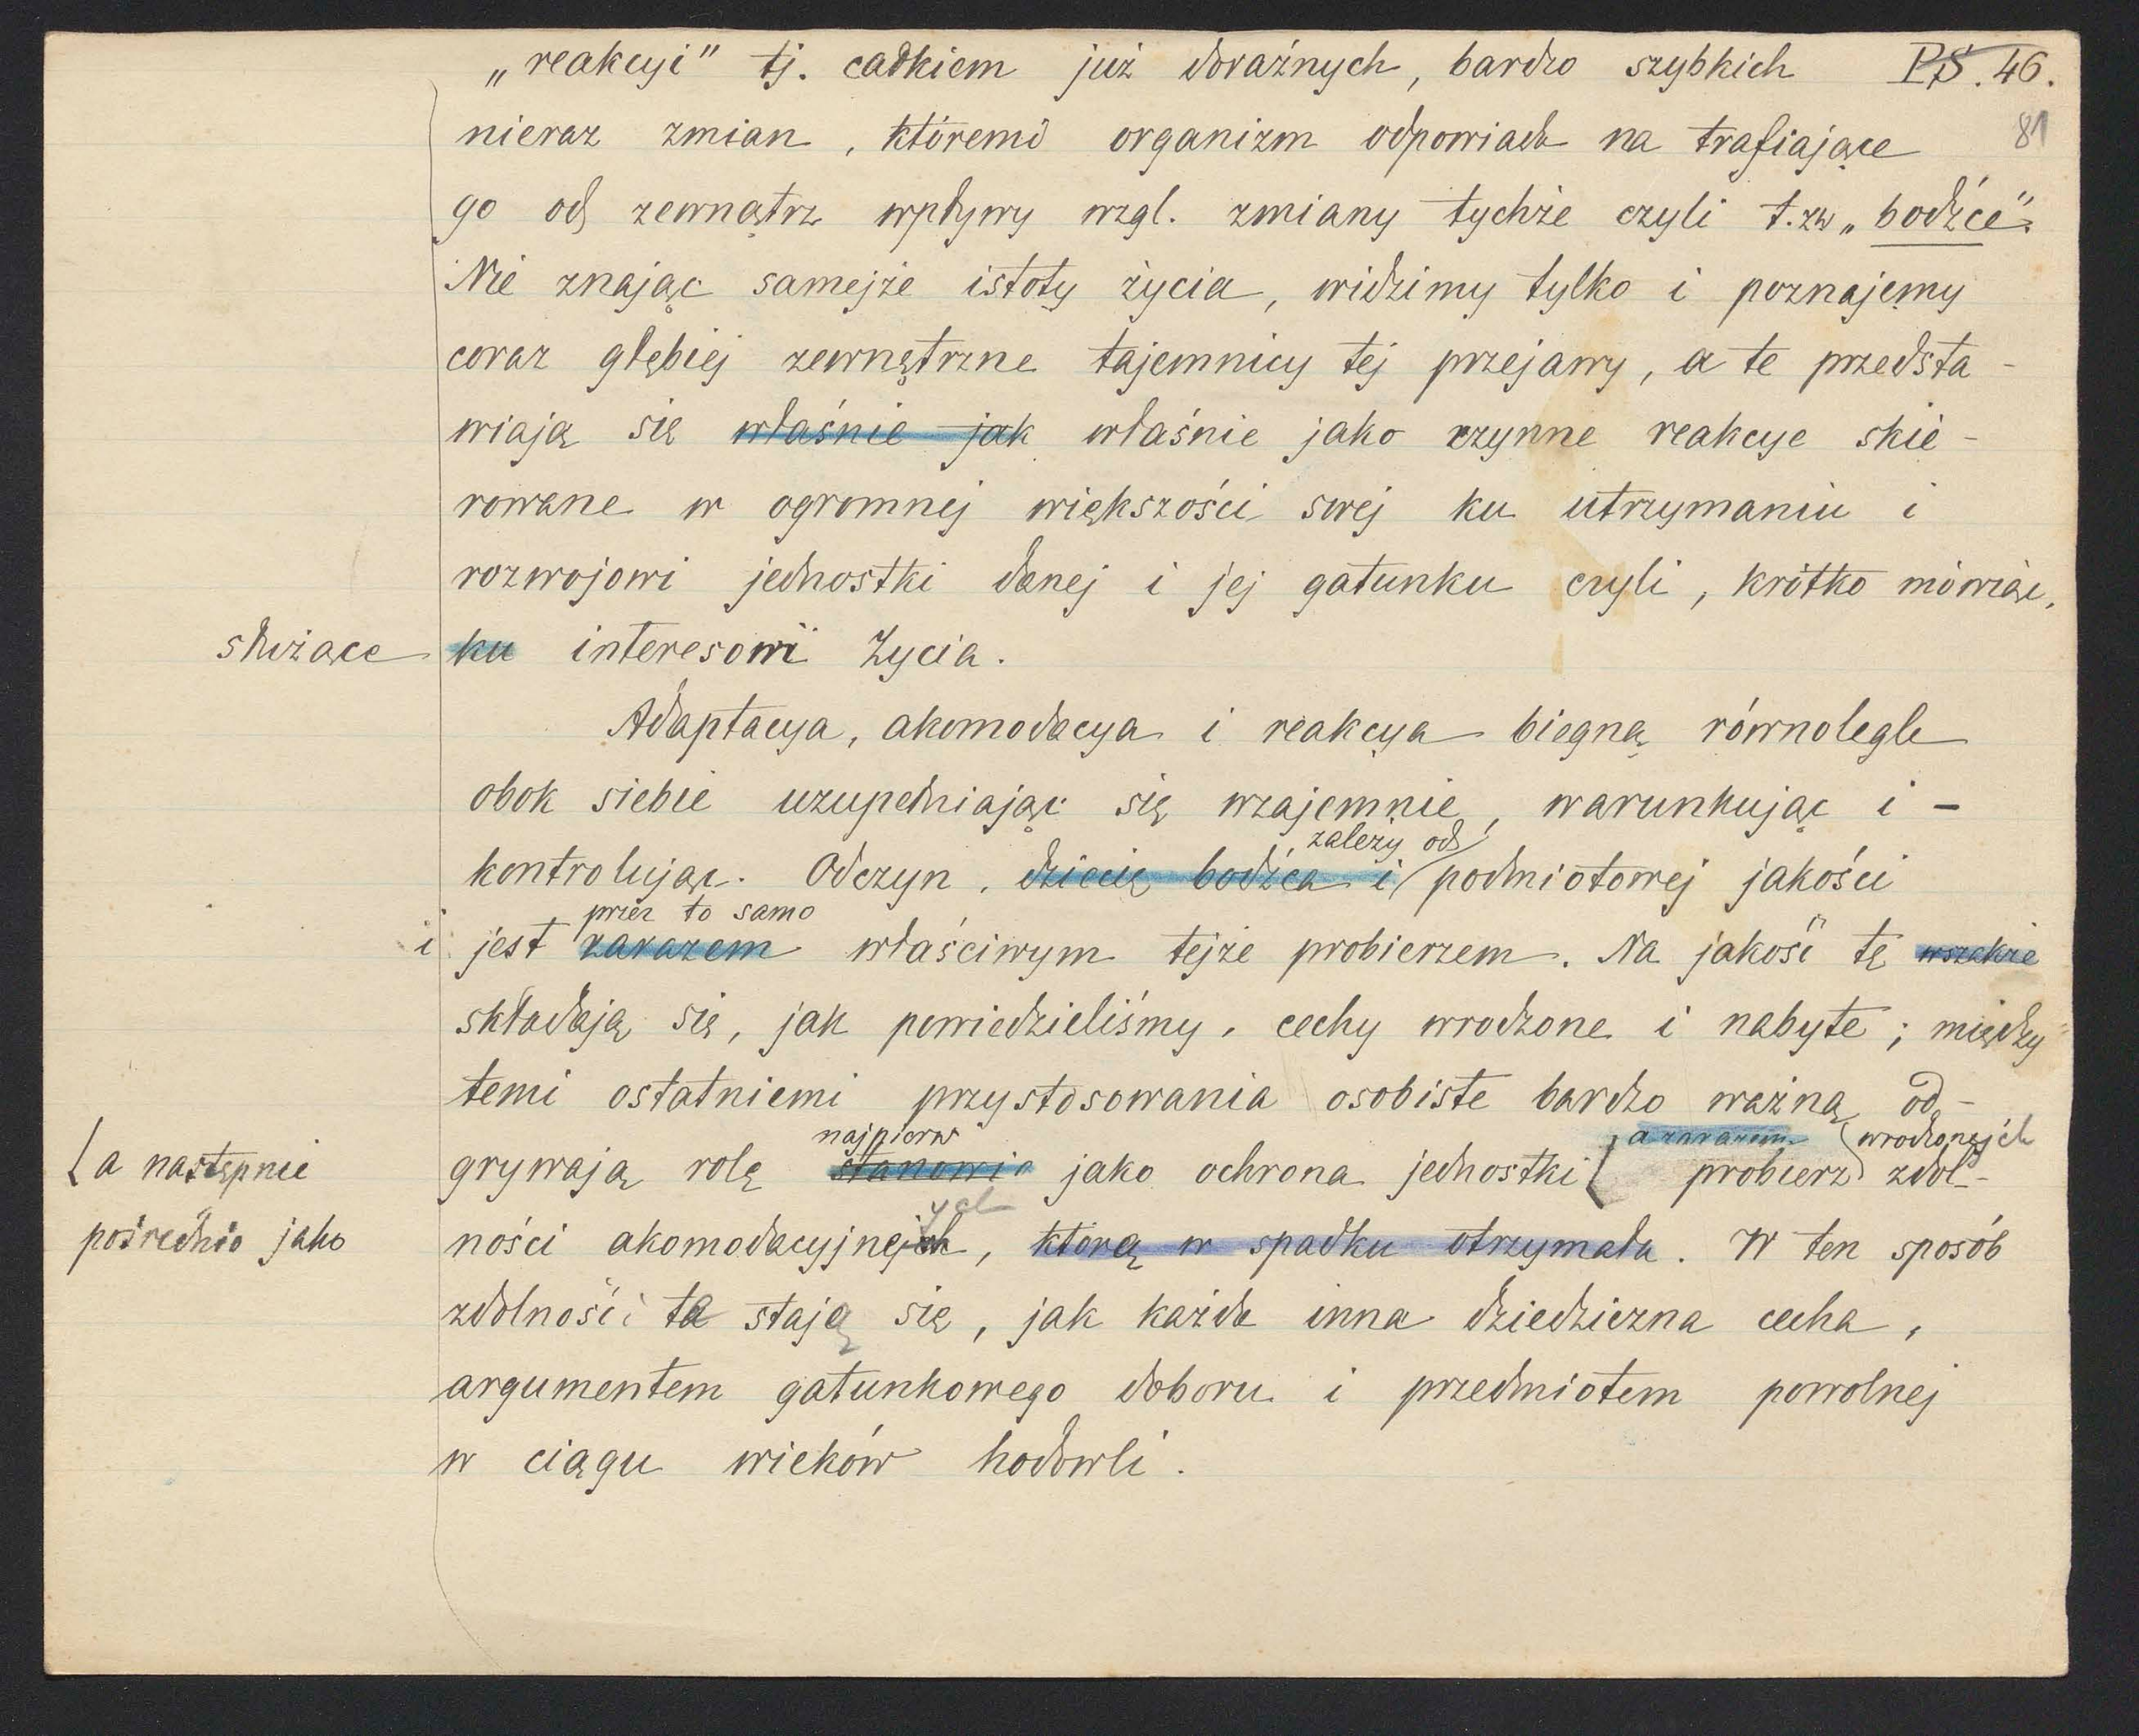 „reakcyi" tj. całkiem już doraźnych, bardzo szybkich PS. 46.
81
nieraz zmian, któremi organizm odpowiada na trafiające
go od zewnątrz wpływy wzgl. zmiany tychże czyli t.zw „bodźce".
Nie znając samejże istoty życia, widzimy tylko i poznajemy
coraz głębiej zewnętrzne tajemnicy tej przejawy, a te przedsta-
wiają się właśnie jak właśnie jako czynne reakcye skie-
rowane w ogromnej większości swej ku utrzymaniu i
rozwojowi jednostki danej i jej gatunku czyli, krótko mówiąc,
służące ku interesowi Życia.
Adaptacya, akomodacya i reakcya biegną równolegle
obok siebie uzupełniając się wzajemnie, warunkując i -
zależy od
kontrolując. Odczyn, dziecię bodźca i podmiotowej jakości
przez to samo
i jest zarazem właściwym tejże probierzem. Na jakość tę wszakże
składają się, jak powiedzieliśmy, cechy wrodzone i nabyte; między
temi ostatniemi przystosowania osobiste bardzo ważną od-
najpierw a zarazem wrodzonych
[a następnie grywają rolę stanowią jako ochrona jednostki [ probierz zdol-
ych
pośrednio jako ności akomodacyjnejch, którą w spadku otrzymała. W ten sposób
zdolności te stają się, jak każda inna dziedziczna cecha,
argumentem gatunkowego doboru i przedmiotem powolnej
w ciągu wieków hodowli.